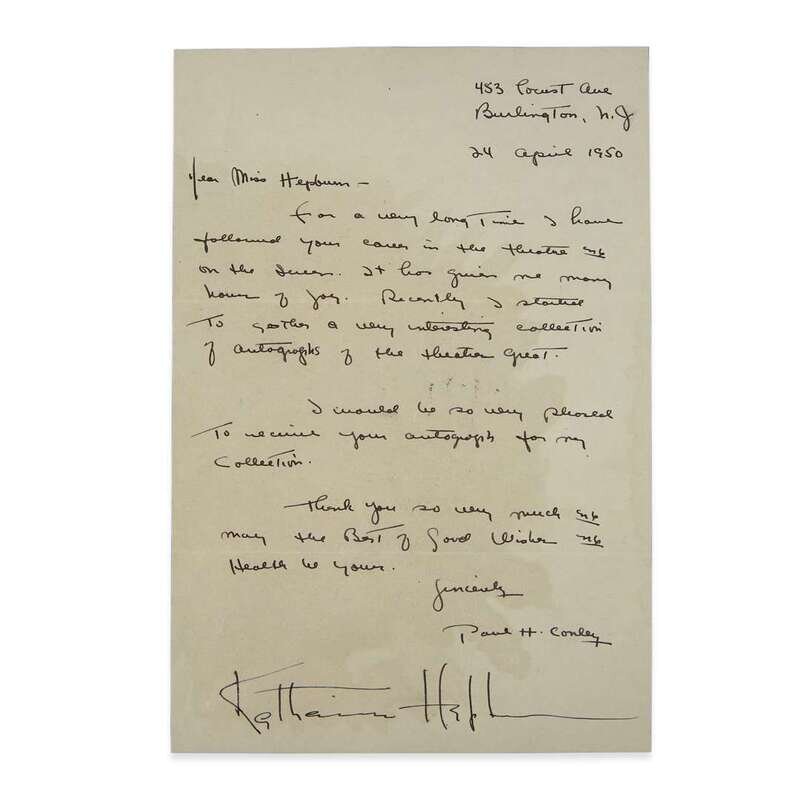 453 Locust Ave
Burlington, N.J
24 April 1950
Dear Miss Hepburn -
For a very long Time I have
followed your career in the theatre and
on the Screen. It has given me many
hours of Joy. Recently I started
To gather a very interesting collection
of autographs of the theatre Great.
I would be so very pleased
To receive your autograph for my
Collection.
Thank you so very much and
may the Best of Good Wishes and
Health be yours.
Sincerely
Paul H. Conley
Katharine Hepburn